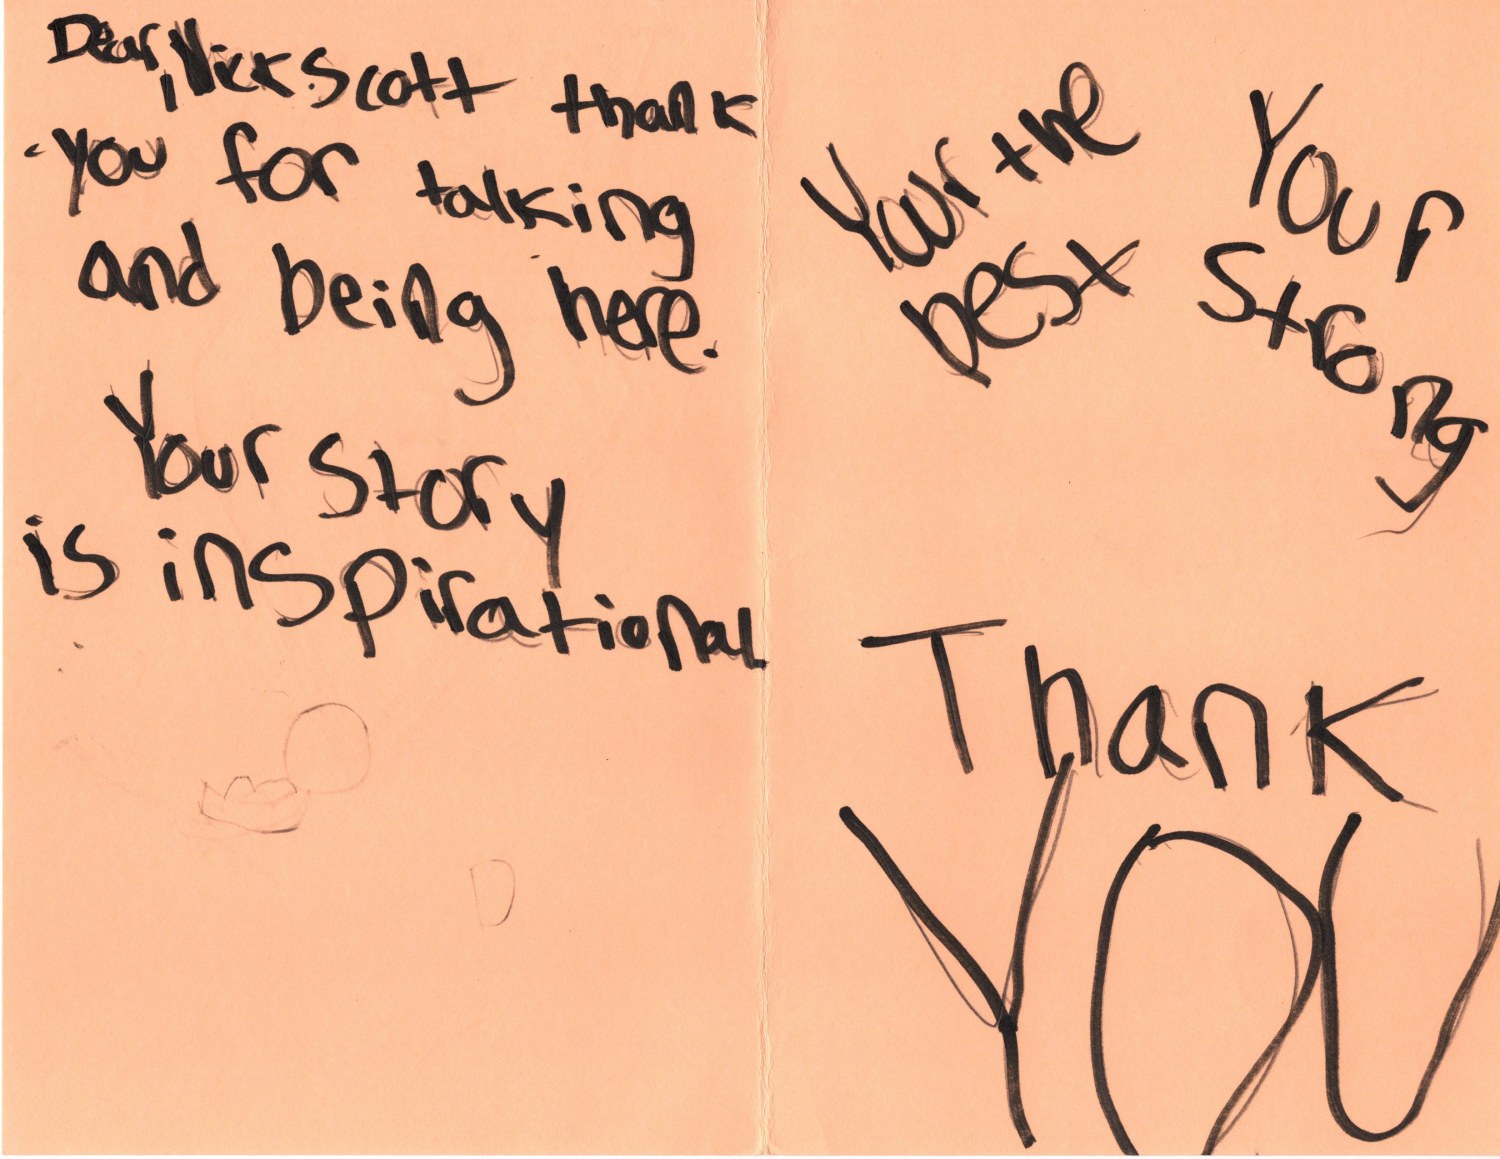 Dear, Nick Scott thank
you for talking
and being here.
Your story
is inspirational
D
Your the
best
Your
Strong
Thank
You